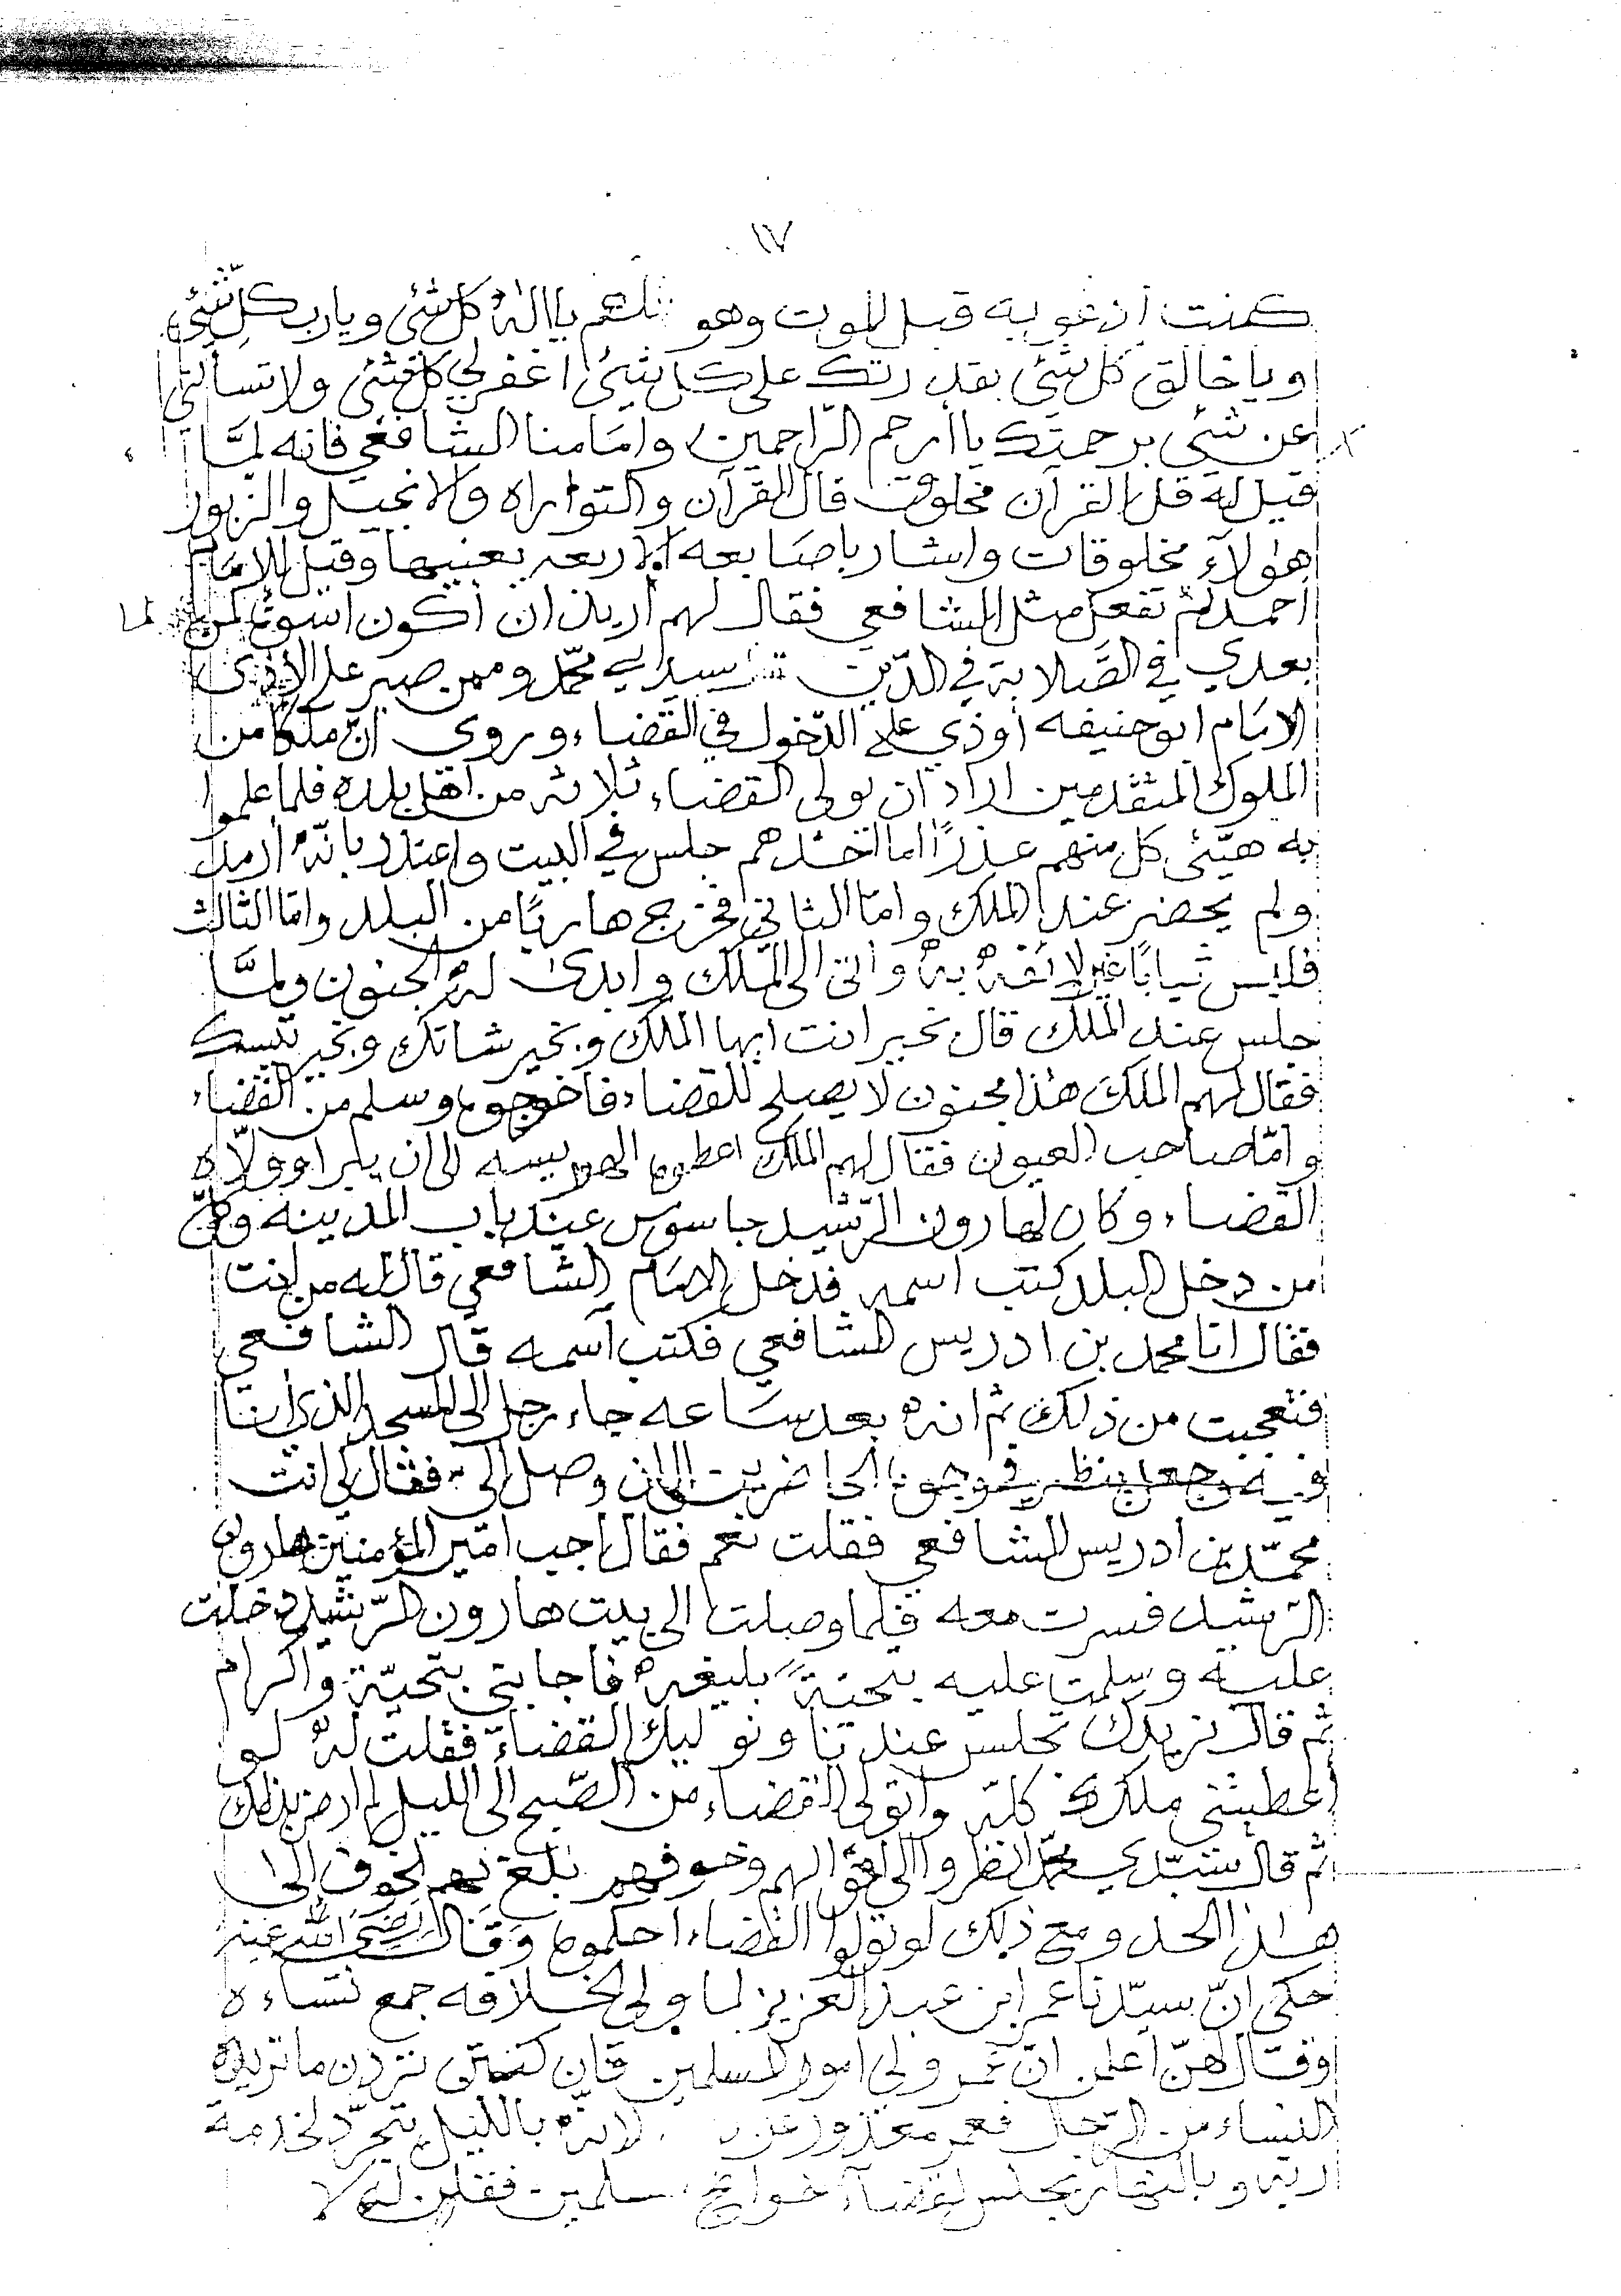 ١٧
كنت أدعو به قبل الموت وهو اللهم يا اله كل شئ ويا رب كل شئ
ويا خالق كل شئ بقدرتك على كل شئ اغفر لي كل شئ ولا تسألني
عن شئ برحمتك يا أرحم الراحمين وامامنا الشافعي فانه لمَّا
قيل له قل القرآن مخلوق قال القرآن والتوراه والانجيل والزبور
هؤلآء مخلوقات واشار باصابعه الاربعه يعنيها وقيل للامام
احمد لم تفعل مثل الشافعي فقال لهم اريد ان أكون اسوة لمن
بعدي في الصَّلابة في الدّين سيدي محمّد وممن صبر على الأذى
الامام ابو حنيفه أوذي على الدّخول في القضاء وروي انّ ملكا من
الملوك المتقدمين اراد ان يولى القضاء ثلاثه من اهل بلده فلما علموا
به هيّئ كل منهم عذرًا اما احدهم جلس في البيت واعتذر بانّهُ ارمد
ولم يحضر عند الملك وامّا الثاني فخرج هاربًا من البلد وامّا الثالث
فلبس ثيابًا غير لائقه به واتى الى الملك وابدى لهُ الجنون ولمَّا
جلس عند الملك قال بخير انت ايها الملك وبخير شاتك وبخير تيسك
فقال لهم الملك هٰذا مجنون لا يصلح للقضاء فاخرجوه وسلم من القضاء
وامّا صاحب العيون فقال لهم الملك اعطوه الى ان يبرا وولّاه
القضاء وكان لهارون الرّشيد جاسوس عند باب المدينه وكلّ
من دخل البلد كتب اسمه فدخل الامام الشافعي قال له من انت
فقال انا محمد بن ادريس الشافعي فكتب اسمه قال الشافعي
فتعجبت من ذلك ثم انه بعد ساعه جاء رجل الى المسجد الذي انا
فيه وجعل ينظر في وجوه الحاضرين الى ان وصل اليّ فقال لى انت
محمّد بن ادريس الشافعي فقلت نعم فقال اجب امير المؤمنين هارون
الرّشيد فسرت معه فلما وصلت الى بيت هارون الرّشيد دخلت
عليه وسلمت عليه بتحية بليغه فاجابني بتحيّة واكرام
ثم قال نريدك تجلس عندنا ونوليك القضاء فقلت لهُ لو
اعطيتني ملكك كلّه واتولى القضاء من الصّبح الى الليل لم ارض بذلك
ثم قال سيّدي محمّد انظروا الى احوالهم وخوفهم بلغ بهم الخوف الى
هذا الحد ومع ذلك لو تولوا القضاء احكموه وقال رضي الله عنه
حكى انّ سيّدنا عمر ابن عبد العزيز لما ولى الخلافه جمع نساءه
وقال لهنّ اعلمن انّ عمر ولي امور المسلمين فان كنتن تردن ما تريده
النساء من الرّجال فعمر معذور لانّه بالليل يتجرّد لخدمة
ربه وبالنهار يجلس لقضاء حوائج المسلمين فقلن له لا